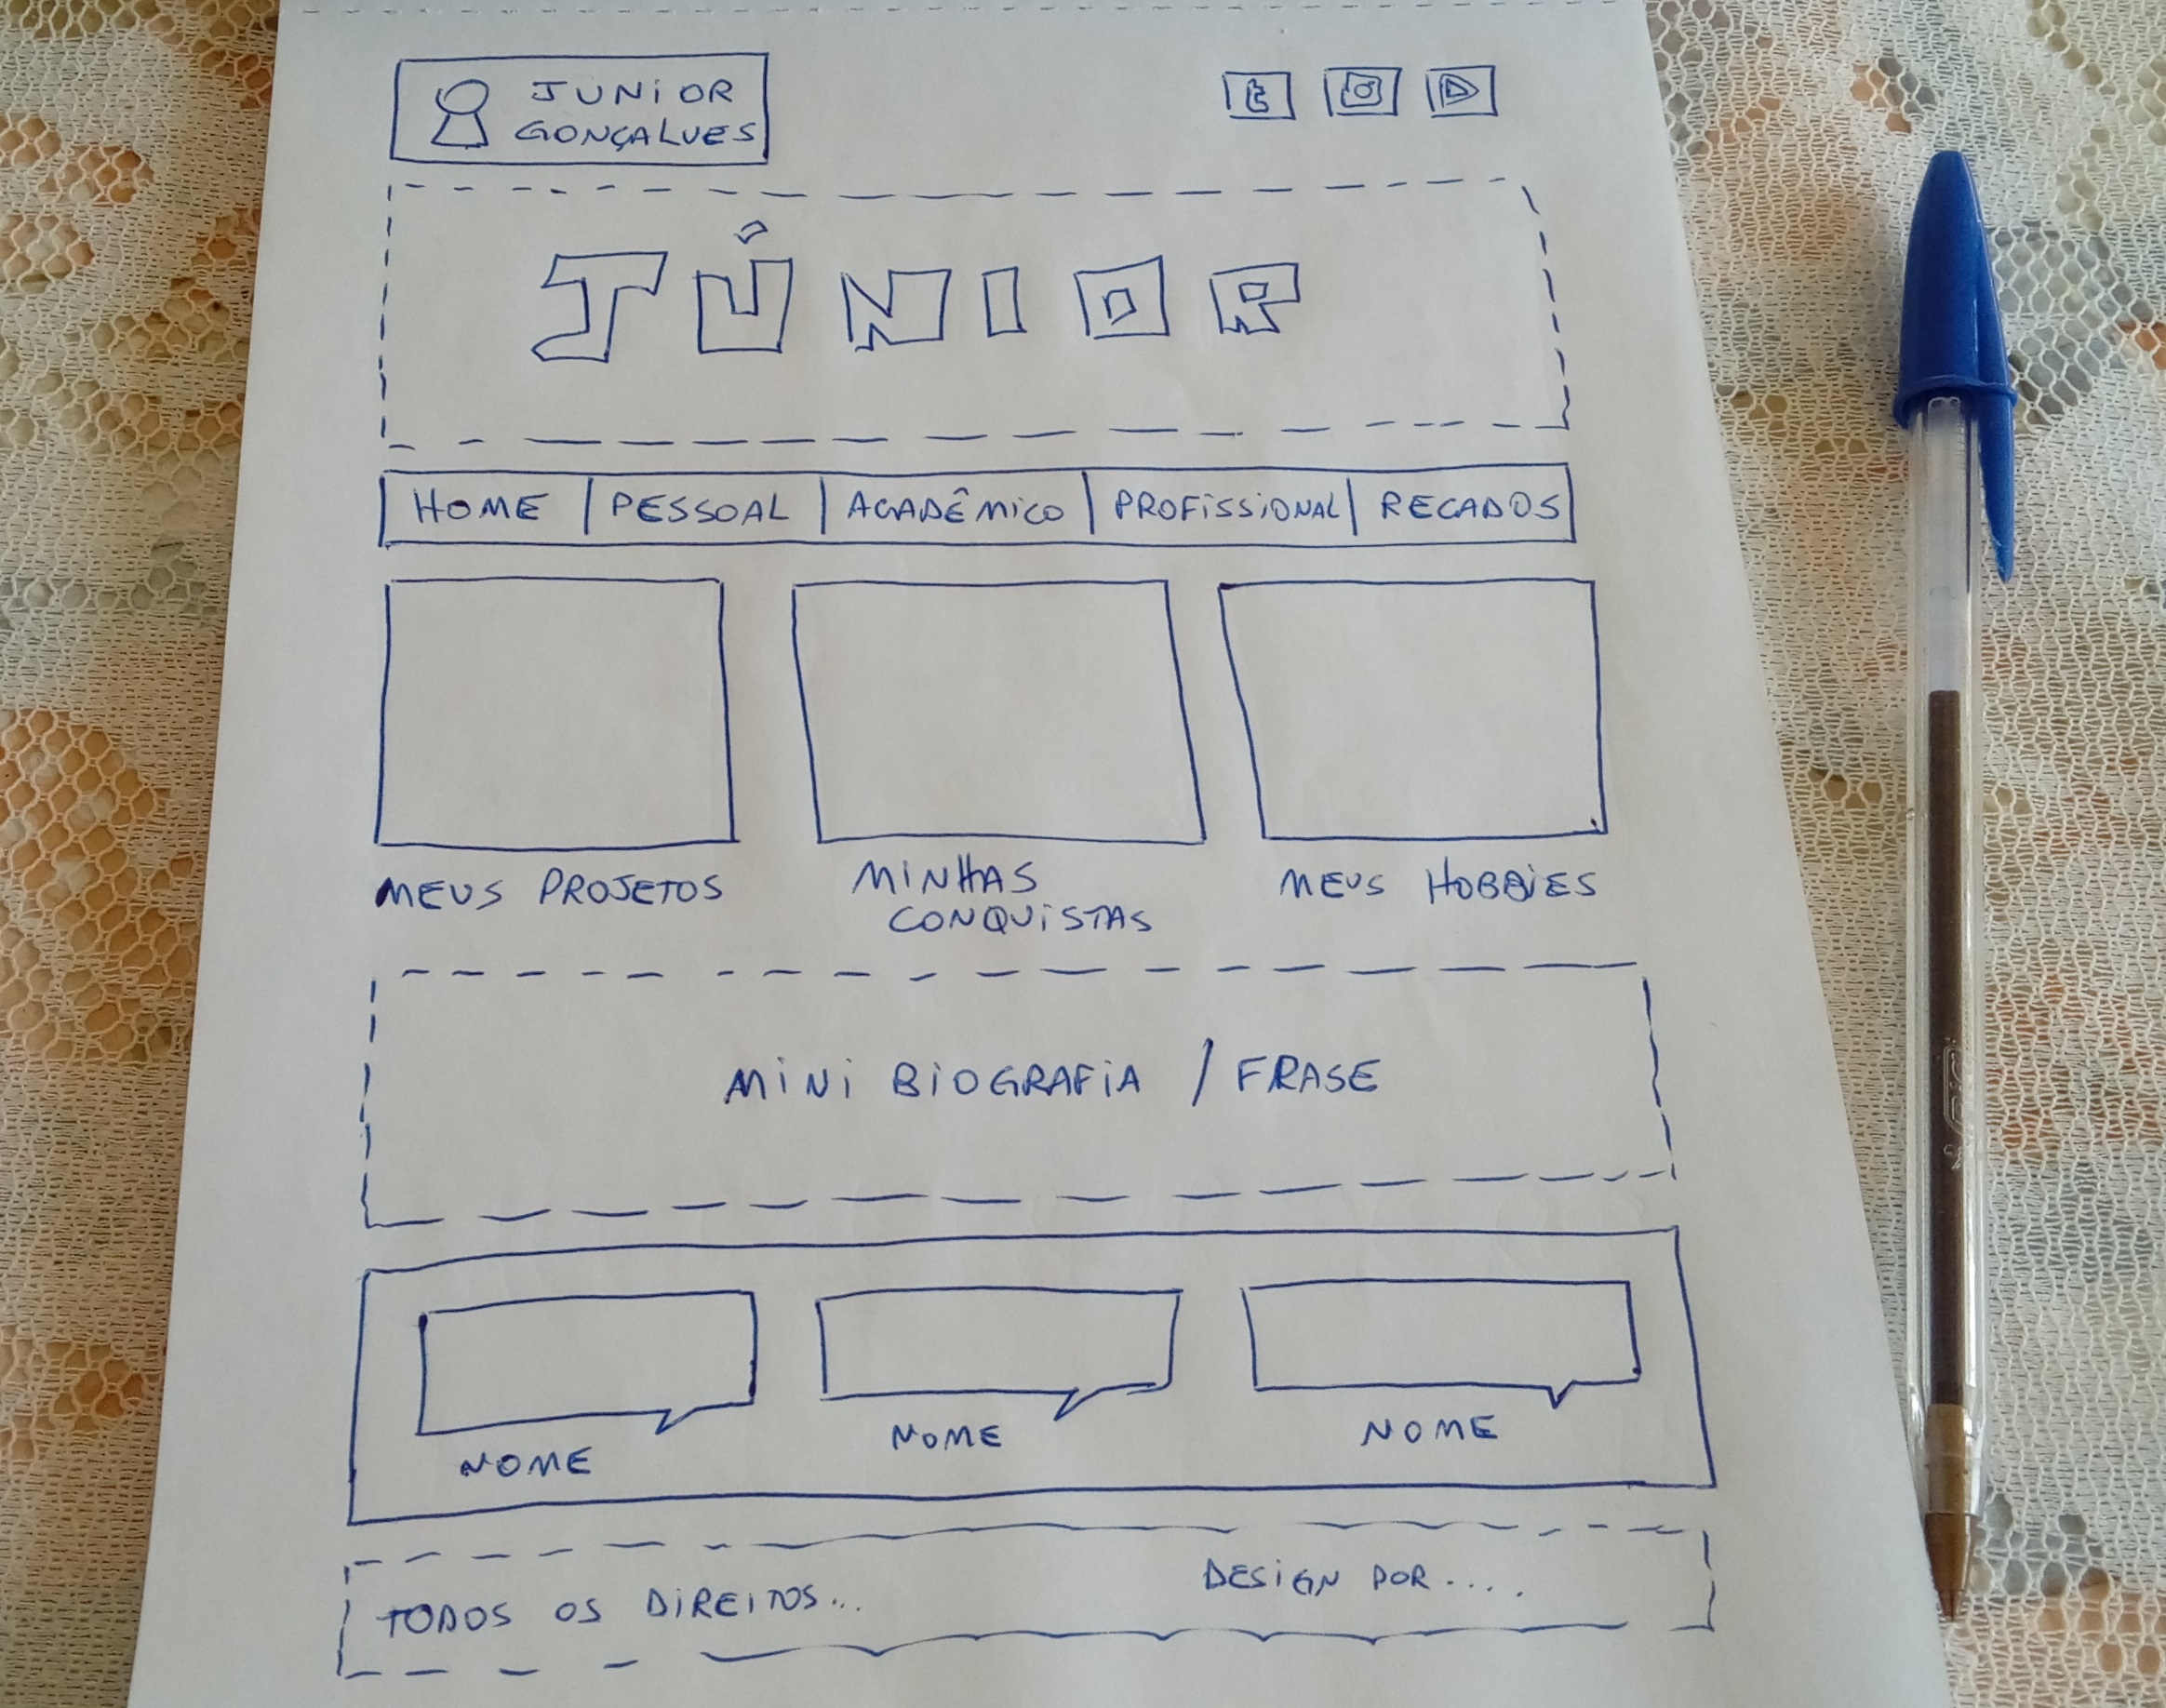 JUNIOR
GONÇALVES
JÚNIOR
HOME PESSOAL ACADÊMICO PROFISSIONAL RECADOS
MEUS PROJETOS
MINHAS
CONQUISTAS
MEUS HOBBIES
MINI BIOGRAFIA / FRASE
NOME
NOME
NOME
TODOS OS DIREITOS...
DESIGN POR.....
BIC